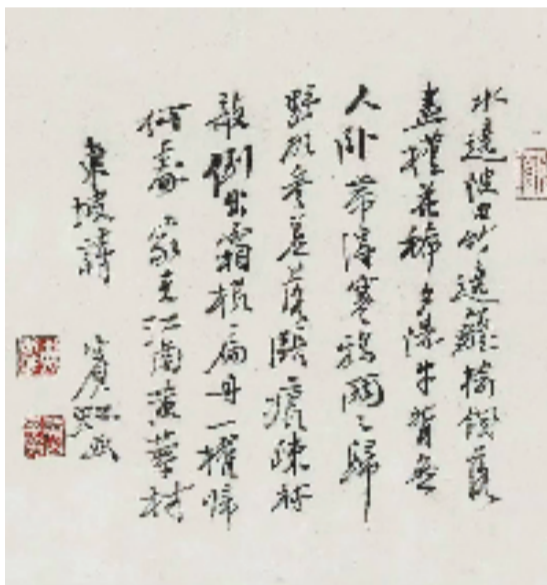 水遶陂田竹遶籬榆錢落
盡槿花稀夕陽牛背無
人卧帶得寒鴉兩〻歸
野水參差落漲痕疎林
攲倒出霜根扁舟一櫂歸
何處家在江南黃葉村
東坡詩 賓虹